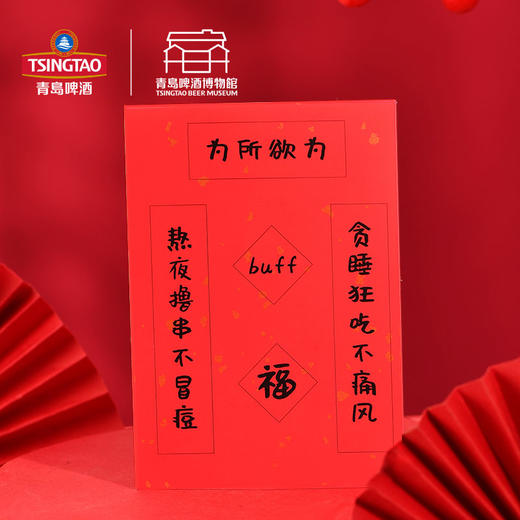 TSINGTAO
青岛啤酒
青島啤酒博物館
TSINGTAO BEER MUSEUM
为所欲为
贪睡狂吃不痛风
熬夜撸串不冒痘
buff
福